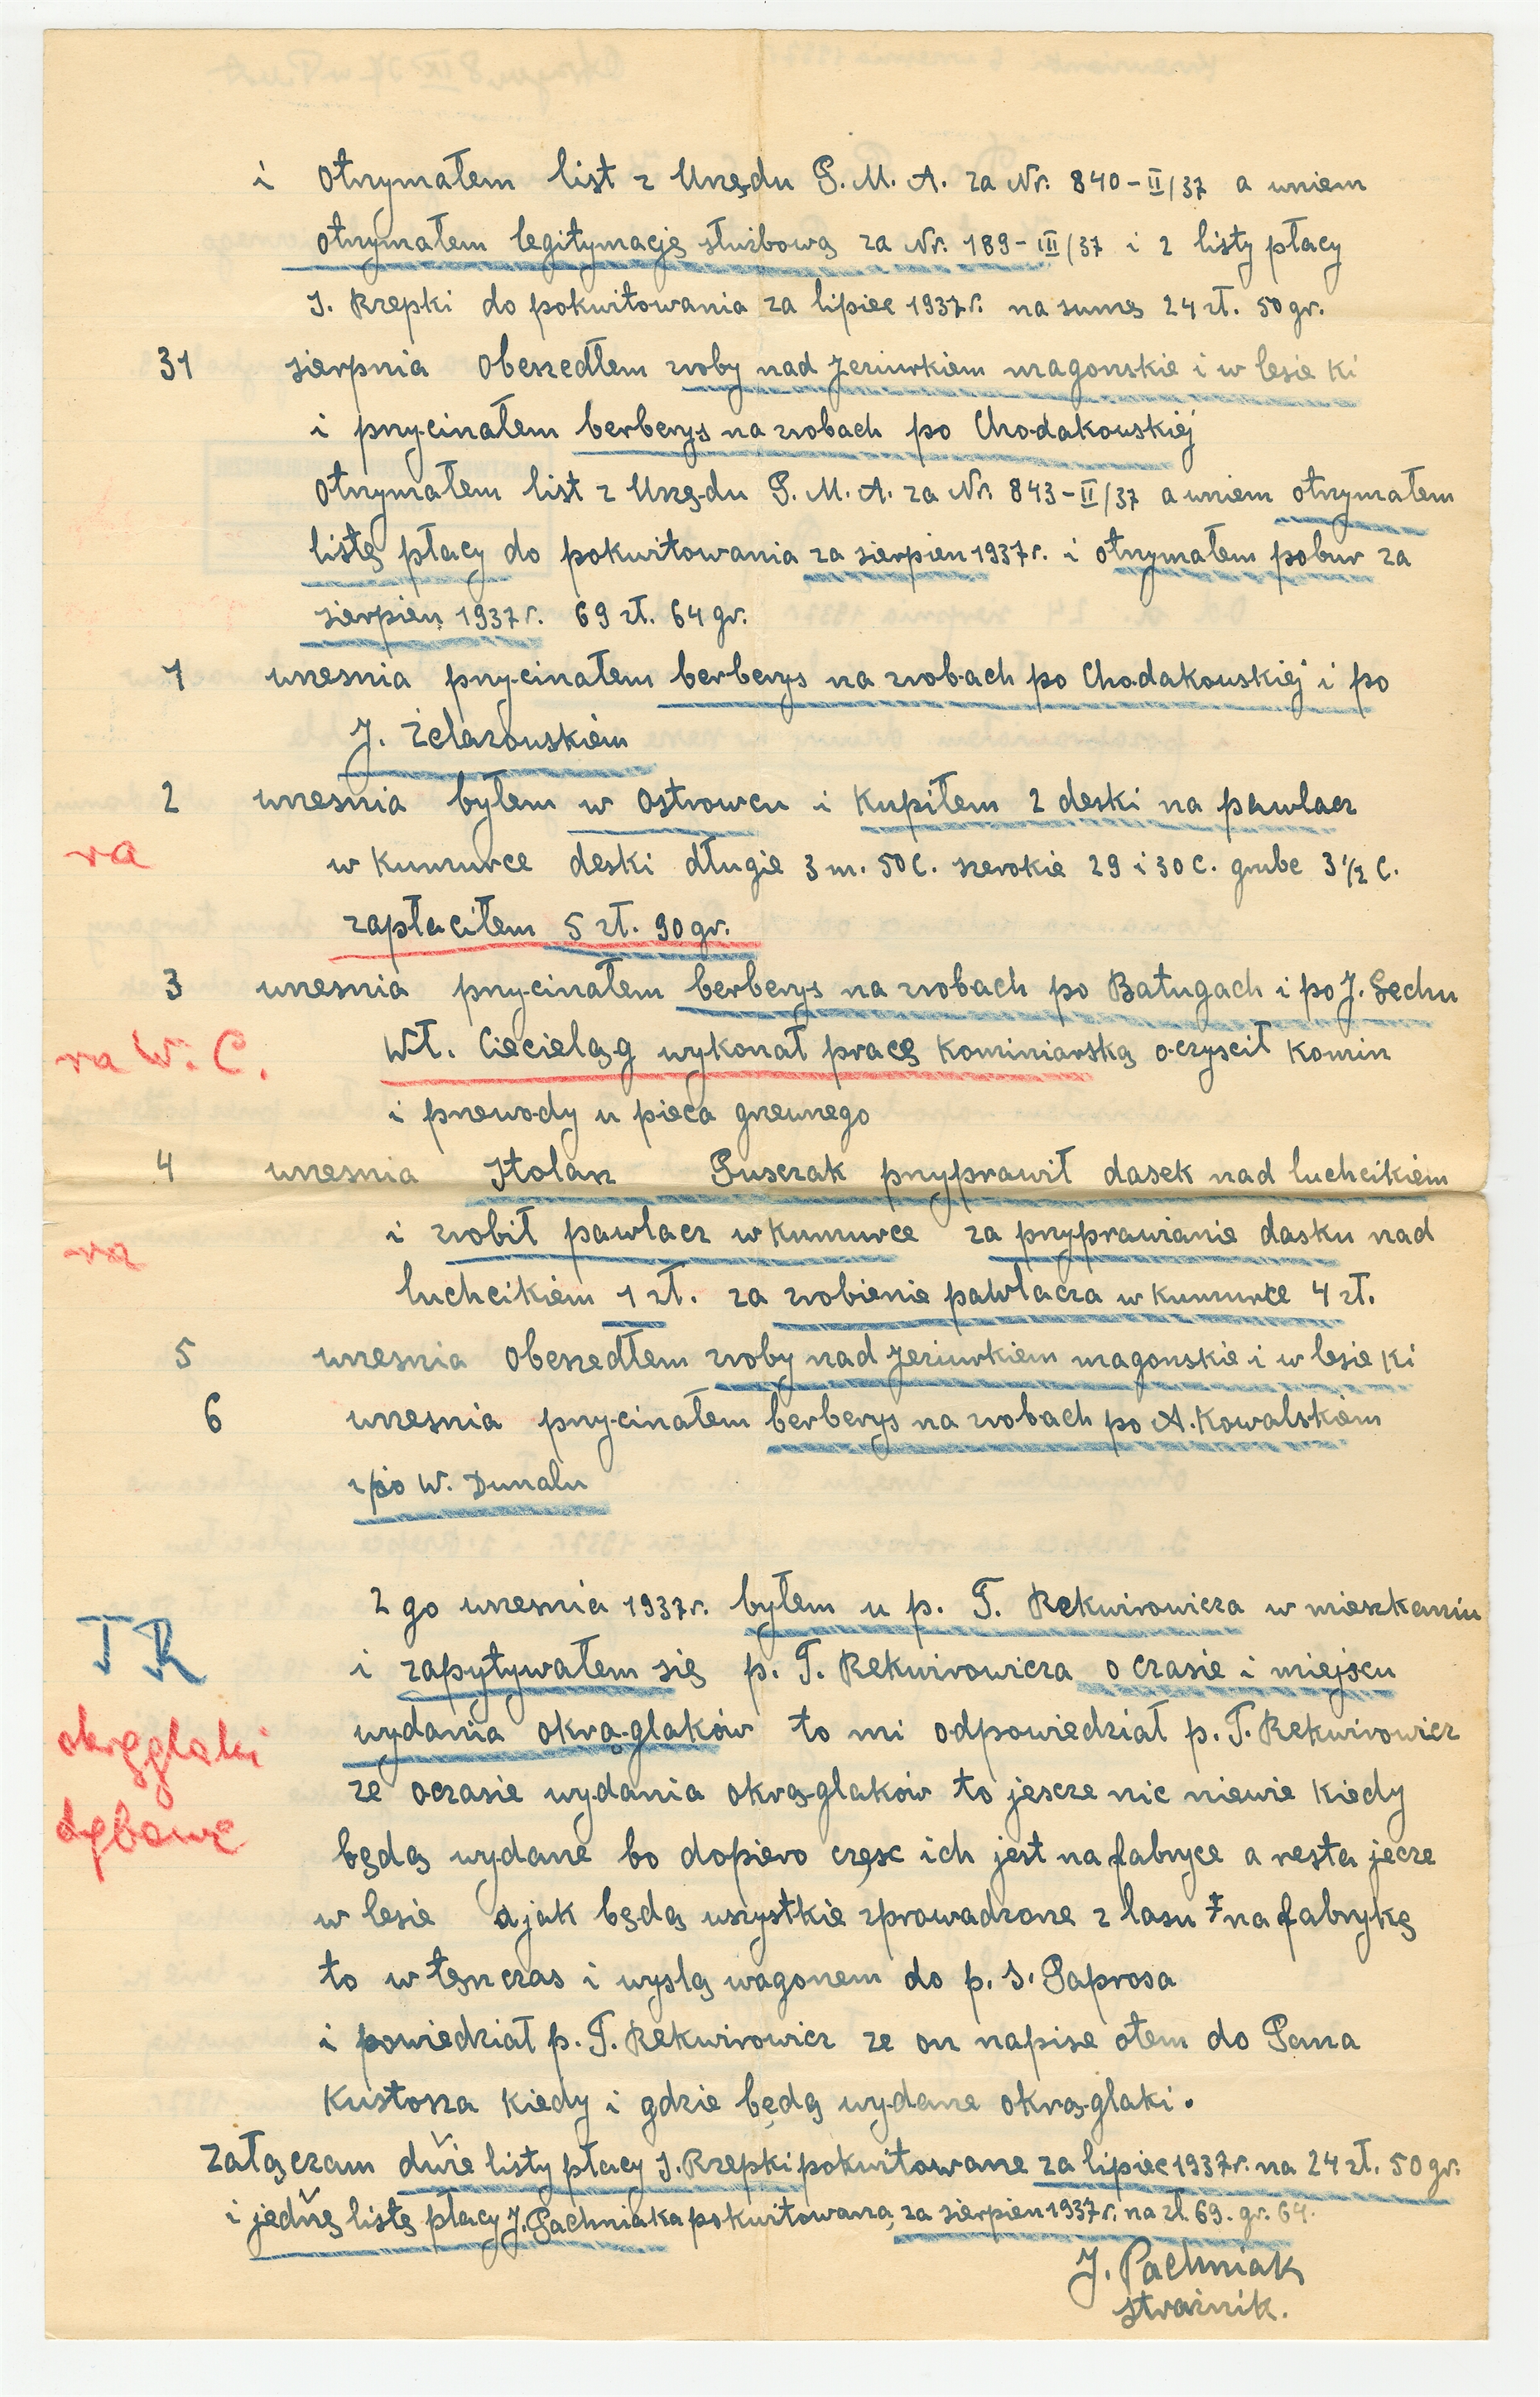 i otrzymałem list z Urzędu P. M. A. za Nr. 840-II/37 a wniem
otrzymałem legitymację służbową za Nr. 189-III/37 i 2 listy płacy
J. Rzepki do pokwitowania za lipiec 1937r. na sumę 24 zł. 50 gr.
31 sierpnia obeszedłem zroby nad Jeziurkiem magonskie i w lesie Ki
i przycinałem berberys na zrobach po Chodakowskiej
otrzymałem list z Urzędu P. M. A. za Nr. 843-II/37 a wniem otrzymałem
listę płacy do pokwitowania za sierpien 1937r. i otrzymałem pobur za
sierpien 1937r. 69 zł. 64 gr.
1 wrzesnia przycinałem berberys na zrobach po Chodakowskiej i po
J. Żelazowskiem
2 wrzesnia byłem w Ostrowcu i Kupiłem 2 deski na pawlacz
ra
w Kumurce deski długie 3 m. 50 C. szerokie 29 i 30 C. grube 3 1/2 C.
zapłaciłem 5 zł. 90 gr.
3 wrzesnia przycinałem berberys na zrobach po Batugach i po J. Sechu
ra W. C.
Wł. Ciecieląg wykonał pracę Kominiarską oczyscił Komin
i przewody u pieca grzewnego
4 wrzesnia Stolarz Puszczak przyprawił dasek nad luchcikiem
ra
i zrobił pawlacz w Kumurce za przyprawianie dasku nad
luchcikiem 1 zł. za zrobienie pawlacza w kumurce 4 zł.
5 wrzesnia obeszedłem zroby nad Jeziurkiem magonskie i w lesie Ki
6 wrzesnia przycinałem berberys na zrobach po A. Kowalskiem
i po W. Dunalu
2 go wrzesnia 1937r. byłem u p. T. Rekwirowicza w mieszkaniu
TR
i zapytywałem się p. T. Rekwirowicza o czasie i miejscu
okrąglaki
wydania okrąglaków to mi odpowiedział p. T. Rekwirowicz
ze oczasie wydania okrąglaków to jescze nic niewie Kiedy
dębowe
będą wydane bo dopiero częsc ich jest na fabryce a resta jecze
w lesie a jak będą wszystkie zprowadzone z lasu na fabrykę
to w tęnczas i wyslą wagonem do p. S. Paprosa
i powiedział p. T. Rekwirowicz ze on napisze otem do Pana
Kustosza Kiedy i gdzie będą wydane okrąglaki.
załączam dwie listy płacy J. Rzepki pokwitowane za lipiec 1937r. na 24 zł. 50 gr.
i jednę listę płacy J. Pachniaka pokwitowaną za sierpien 1937r. na zł. 69. gr. 64.
J. Pachniak
strażnik.